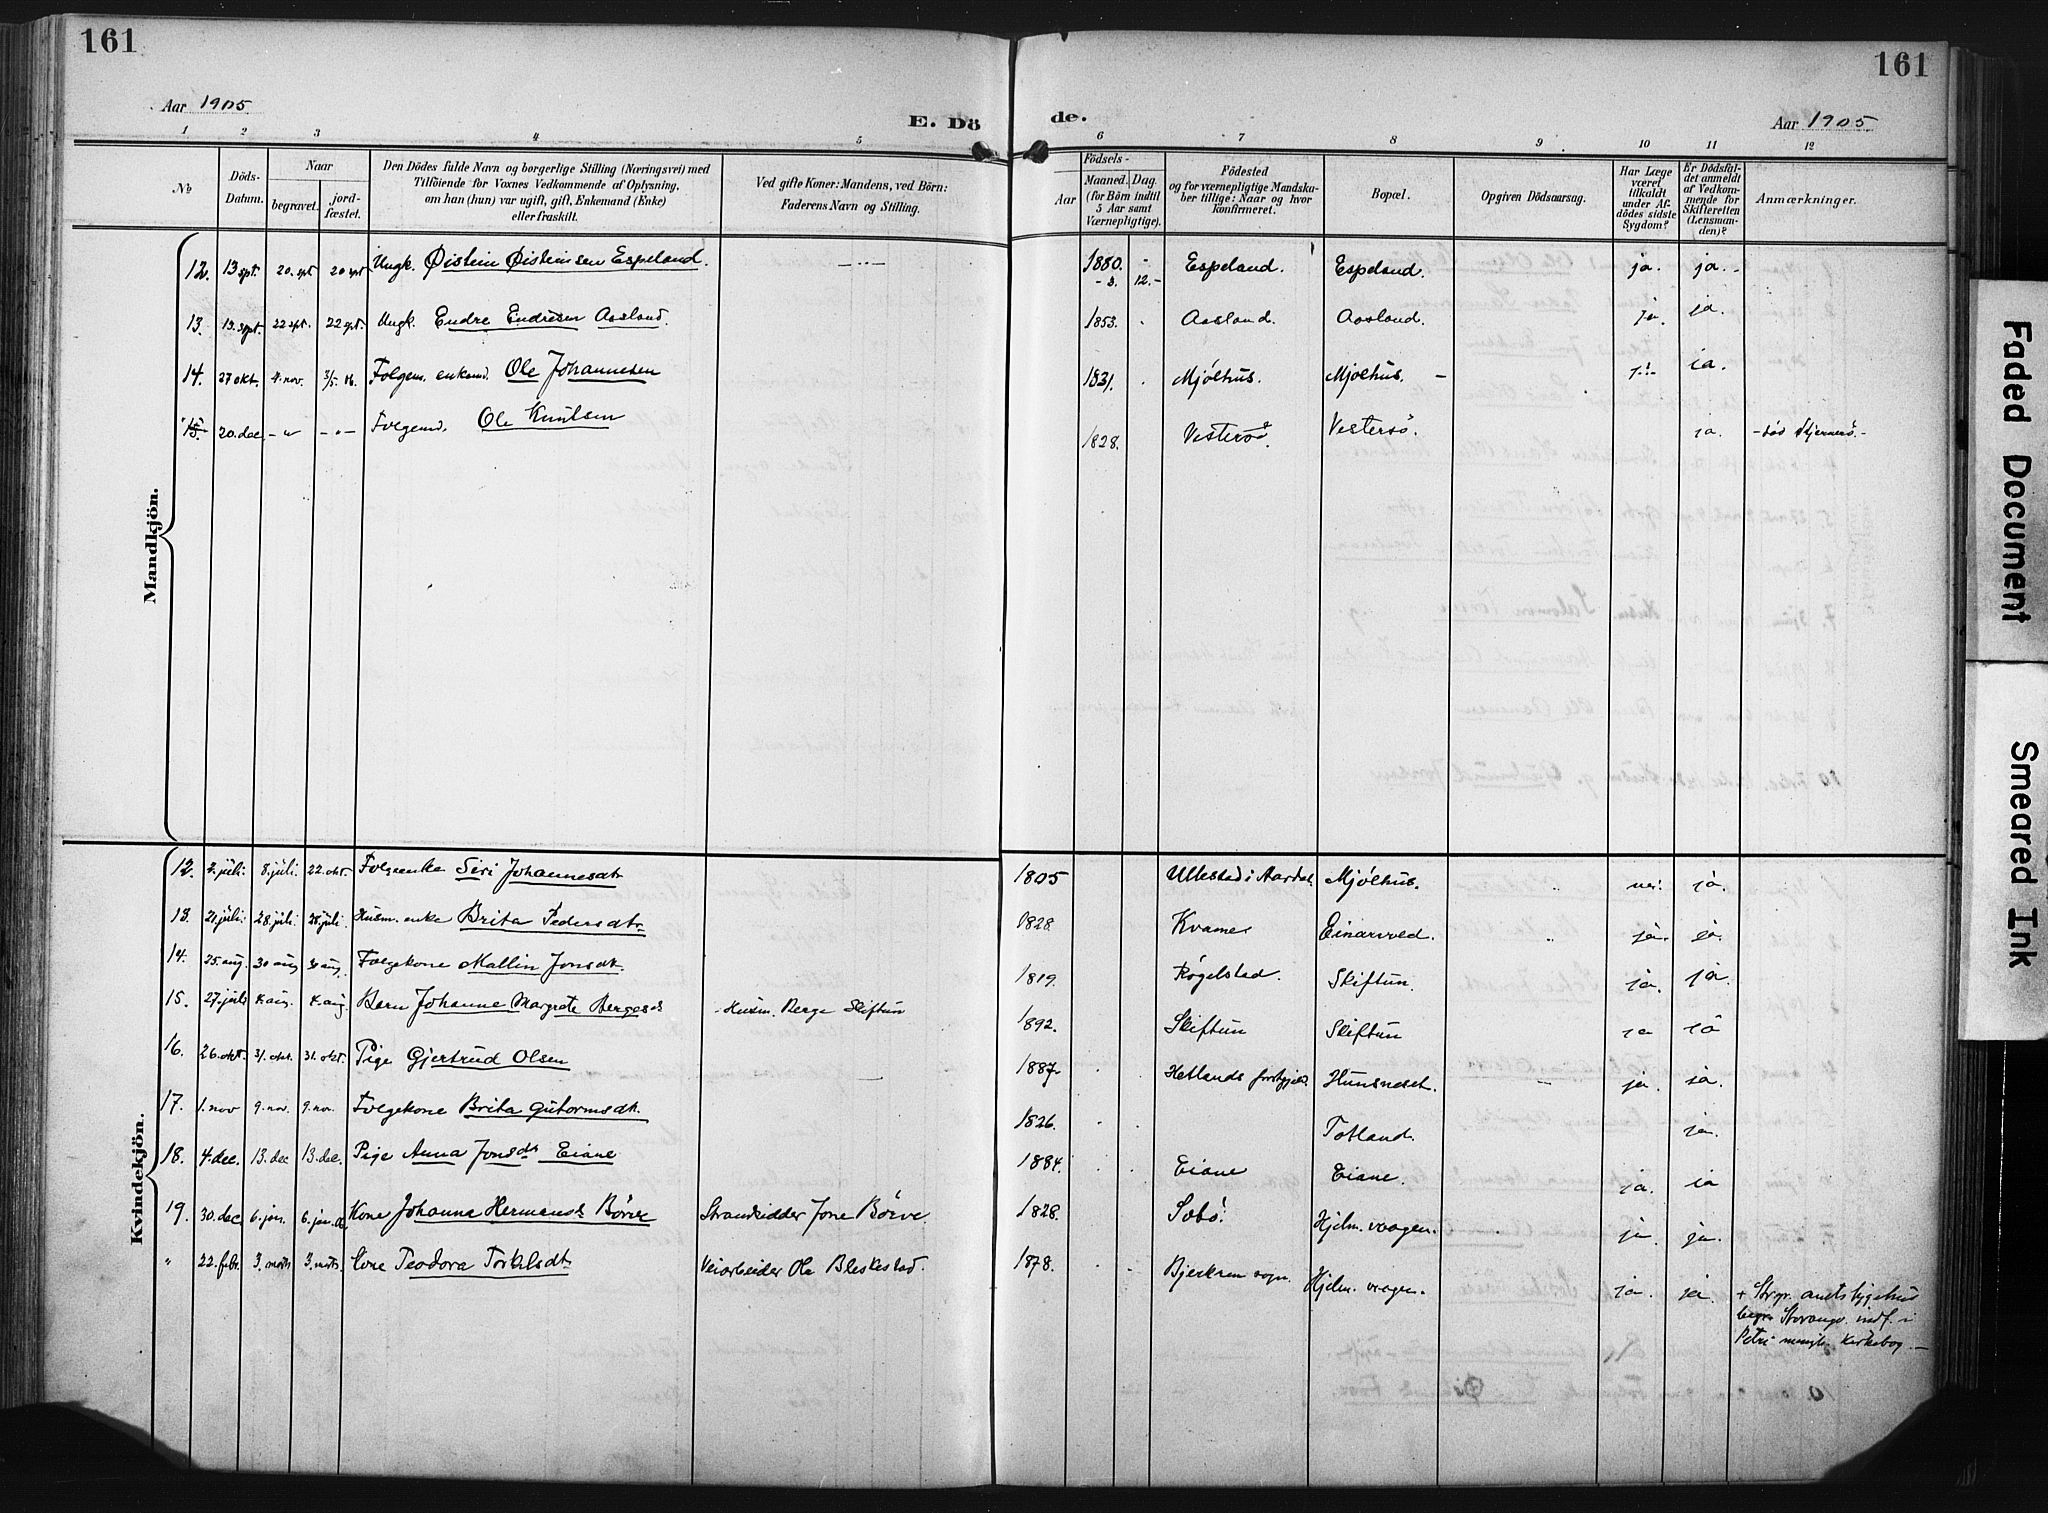 161
161
Aar 1905
E. Dö
de.
Aar 1905
1 2 3 4 5 6 7 8 9 10 11 12
No
Döds-Datum.
Naar
begravet.
jord-fæstet.
Den Dödes fulde Navn og borgerlige Stilling (Næringsvei) med
Tilföiende for Voxnes Vedkommende af Oplysning,
om han (hun) var ugift, gift, Enkemand (Enke)
eller fraskilt.
Ved gifte Koner: Mandens, ved Börn:
Faderens Navn og Stilling.
Födsels-
Aar
Maaned. Dag.
(for Börn indtil
5 Aar samt
Værnepligtige).
Födested
og for værnepligtige Mandska-
ber tillige: Naar og hvor
konfirmeret.
Bopæl.
Opgiven Dödsaarsag.
Har Læge
været
tilkaldt
under Af-
dödes sidste
Sygdom?
Er Dödsfal-
det anmeldt
af Vedkom-
mende for
Skifteretten
(Lensman-
den)?
Anmærkninger.
Mandkjön.
12. 13 spt. 20. spt 20 spt Ungk. Øistein Øisteinsen Espeland. — " — 1880. - 3. 12. - Espeland. Espeland. ja. ja. -
13. 19. spt. 22 spt. 22 spt. Ungk. Endre Endresen Aasland. 1853. Aasland. Aasland. ja. ja.
14. 27 okt. 4. nov. 3/5. 06. Folgem. enkemd. Ole Johannesen 1831. Mjølhus. Mjølhus. - ja. ja.
15. 20. dec. - " - " - Folgemd. Ole Knutsen 1828. Vestersø. Vestersø. ja. - død Stjernerö. -
Kvindekjön.
12. 2. juli. 8. juli. 22. okt. Folgeenke Siri Johannesdt. 1805 Ullestad i Aardal. Mjølhus. nei. ja.
13. 21. juli. 28. juli. 28. juli. Husm. enke Brita Pedersdtr. 1828. Kvame Einarvved. ja. ja.
14. 25. aug. 30 aug 30 aug. Folgekone Mallin Jonsdt. 1819. Røgelstad. Skiftun. ja. ja.
15. 27. juli 4. aug. 4. aug Barn Johanne Margrete Bergesdt - Husm. Berge Skiftun 1892. Skiftun Skiftun ja ja
16. 26. okt. 31. okt. 31. okt. Pige Gjertrud Olsen — 1887. Hetlands Hunsneset. ja. ja.
17. 1. nov 9. nov. 9. nov. Folgekone Brita Gutormsdt. 1826. Totland. ja.
18. 4. dec. 13. dec 13. dec. Pige Anna Jonsdt Eiane 1884. Eiane Eiane. ja. ja
19. 30. dec 6. jan. 6. jan. 06 Kone Johanna Hermansdt Børve Strandsidder Jone Börve. 1828. Sobö. Hjelm. vaagen. ja. ja.
" 22. febr. 3. marts 3. marts. Kone Teodora Torkelsdt. Veiarbeider Ole Bleskestad. 1878. Bjerkrem sogn. Hjelm. vaagen. ja. ja. + Stvgr. amts sygehus
begr. Stavanger. indf. i
Petri menigh. Kirkebog. -
Faded Document
Smeared Ink